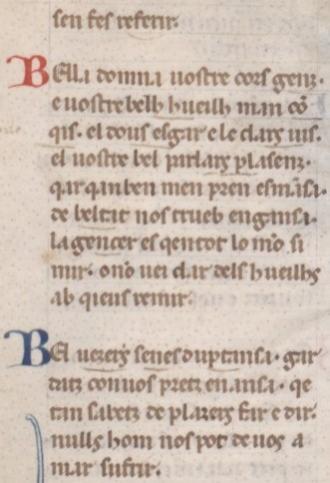 sen fes referir.
Bella domna uostre cors genz.
e uostre bels hueilh man cõ
qis. el dous esgar e le clars uis.
el uostre bel parlars plasenz.
qar qan ben men pren esmãsa.
de beltat nos trueb engansa.
la gencer es qen tot lo mõ si
mir. o no uei clar dels hueilhs
ab qieus remir.
Bel uezers senes duptansa. gar
datz con uos pretz enansa. qe
tan sabetz de plazers far e dir.
nulls hom nos pot de uos a
mar sufrir.